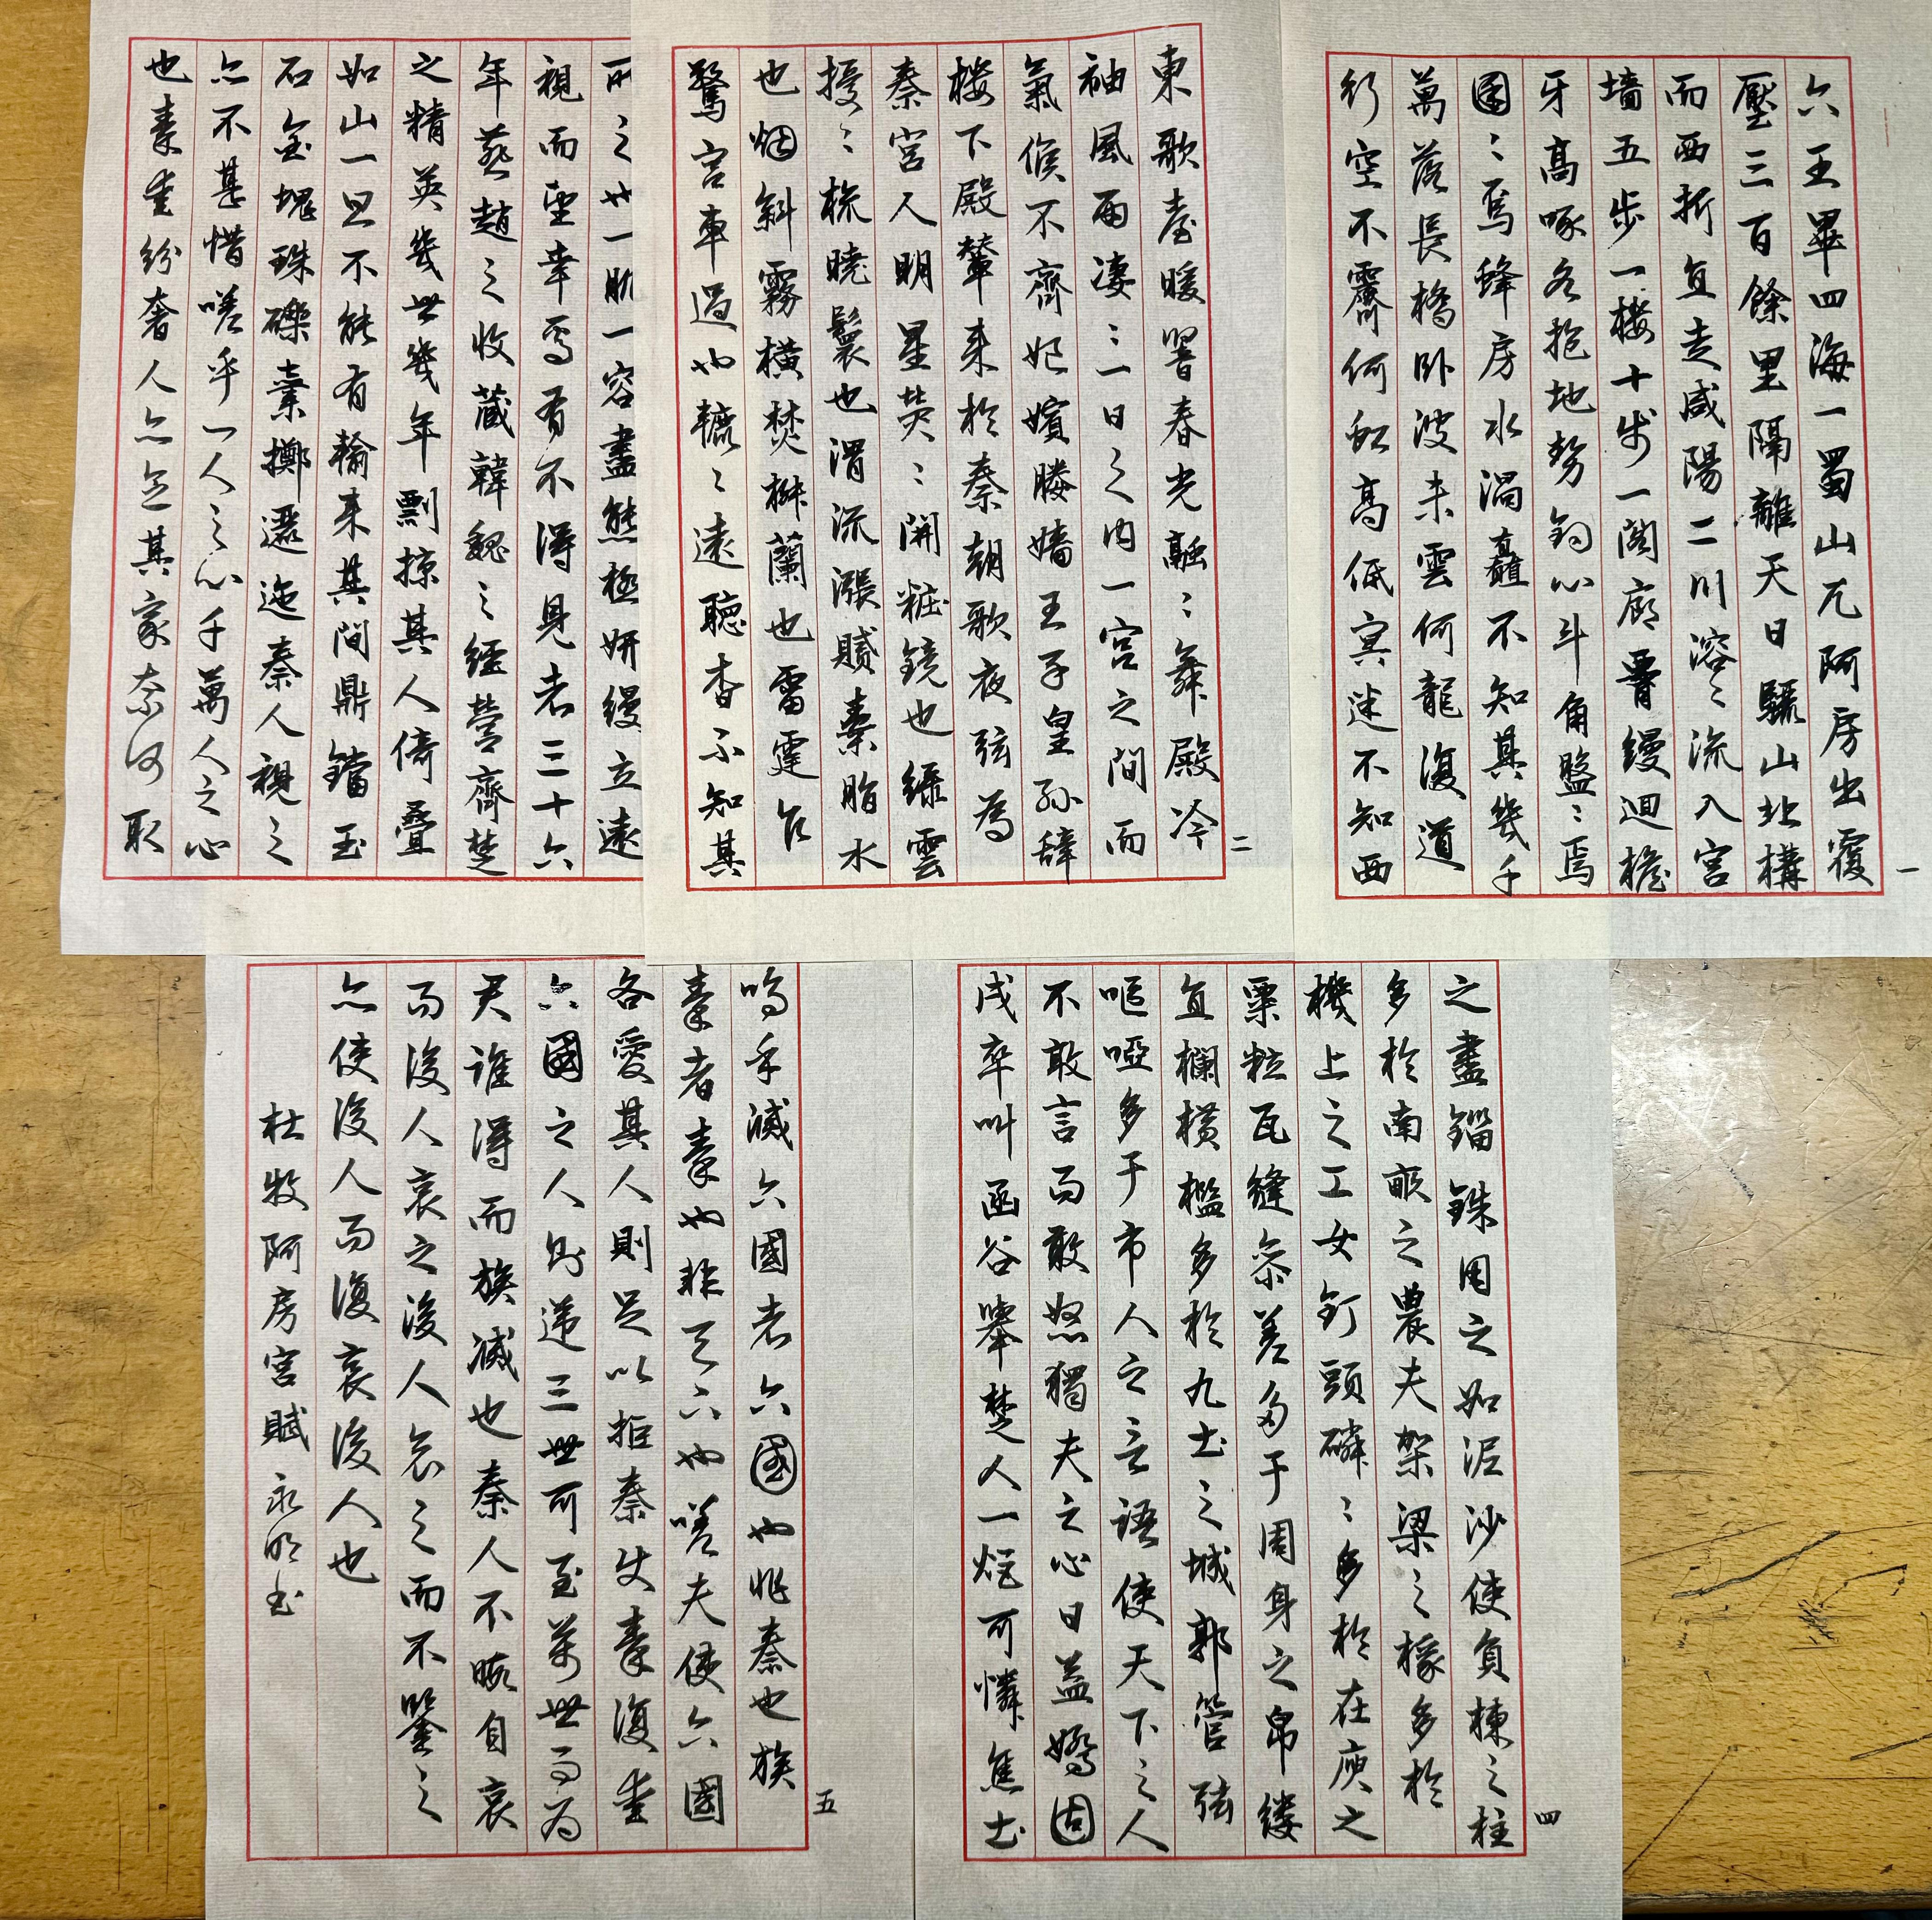 六王畢四海一蜀山兀阿房出覆
壓三百餘里隔離天日驪山北構
而西折直走咸陽二川溶〻流入宮
墻五步一樓十步一閣廊腰縵迴檐
牙高啄各抱地勢鈎心斗角盤〻焉
囷〻焉蜂房水渦矗不知其幾千
萬落長橋卧波未雲何龍復道
行空不霽何虹高低冥迷不知西
一
東歌臺暖響春光融〻舞殿冷
袖風雨凄〻一日之內一宮之間而
氣候不齊妃嬪媵嬙王子皇孫辭
樓下殿輦来於秦朝歌夜弦為
秦宮人明星熒〻開粧鏡也綠雲
擾〻梳曉鬟也渭流漲膩棄脂水
也烟斜霧橫焚椒蘭也雷霆乍
驚宮車過也轆〻遠聽杳不知其
二
所之也一肌一容盡態極妍縵立遠
視而望幸焉有不得見者三十六
年燕趙之收藏韓魏之經營齊楚
之精英幾世幾年剽掠其人倚疊
如山一旦不能有輸来其間鼎鐺玉
石金塊珠礫棄擲邐迤秦人視之
亦不甚惜嗟乎一人之心千萬人之心
也秦愛紛奢人亦念其家奈何取
之盡錙銖用之如泥沙使負棟之柱
多於南畝之農夫架梁之椽多於
機上之工女釘頭磷〻多於在庾之
粟粒瓦縫參差多于周身之帛縷
直欄橫檻多於九土之城郭管弦
嘔啞多于市人之言語使天下之人
不敢言而敢怒獨夫之心日益驕固
戍卒叫函谷舉楚人一炬可憐焦土
四
嗚乎滅六國者六國也非秦也族
秦者秦也非天下也嗟夫使六國
各愛其人則足以拒秦使秦復愛
六國之人則遞三世可至萬世而为
君誰得而族滅也秦人不暇自哀
而後人哀之後人哀之而不鑒之
亦使後人而復哀後人也
杜牧阿房宮賦 永明书
五